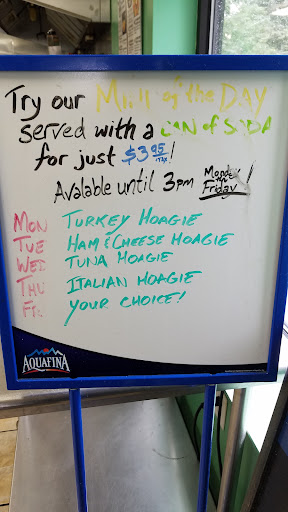 Try our Meal of the DAY
served with a CAN of SODA
for just $3.95 +tax!
Avalable until 3pm Monday to Friday!
MON TURKEY HOAGIE
TUE HAM & CHEESE HOAGIE
WED TUNA HOAGIE
THU ITALIAN HOAGIE
FRI YOUR CHOICE!
AQUAFINA